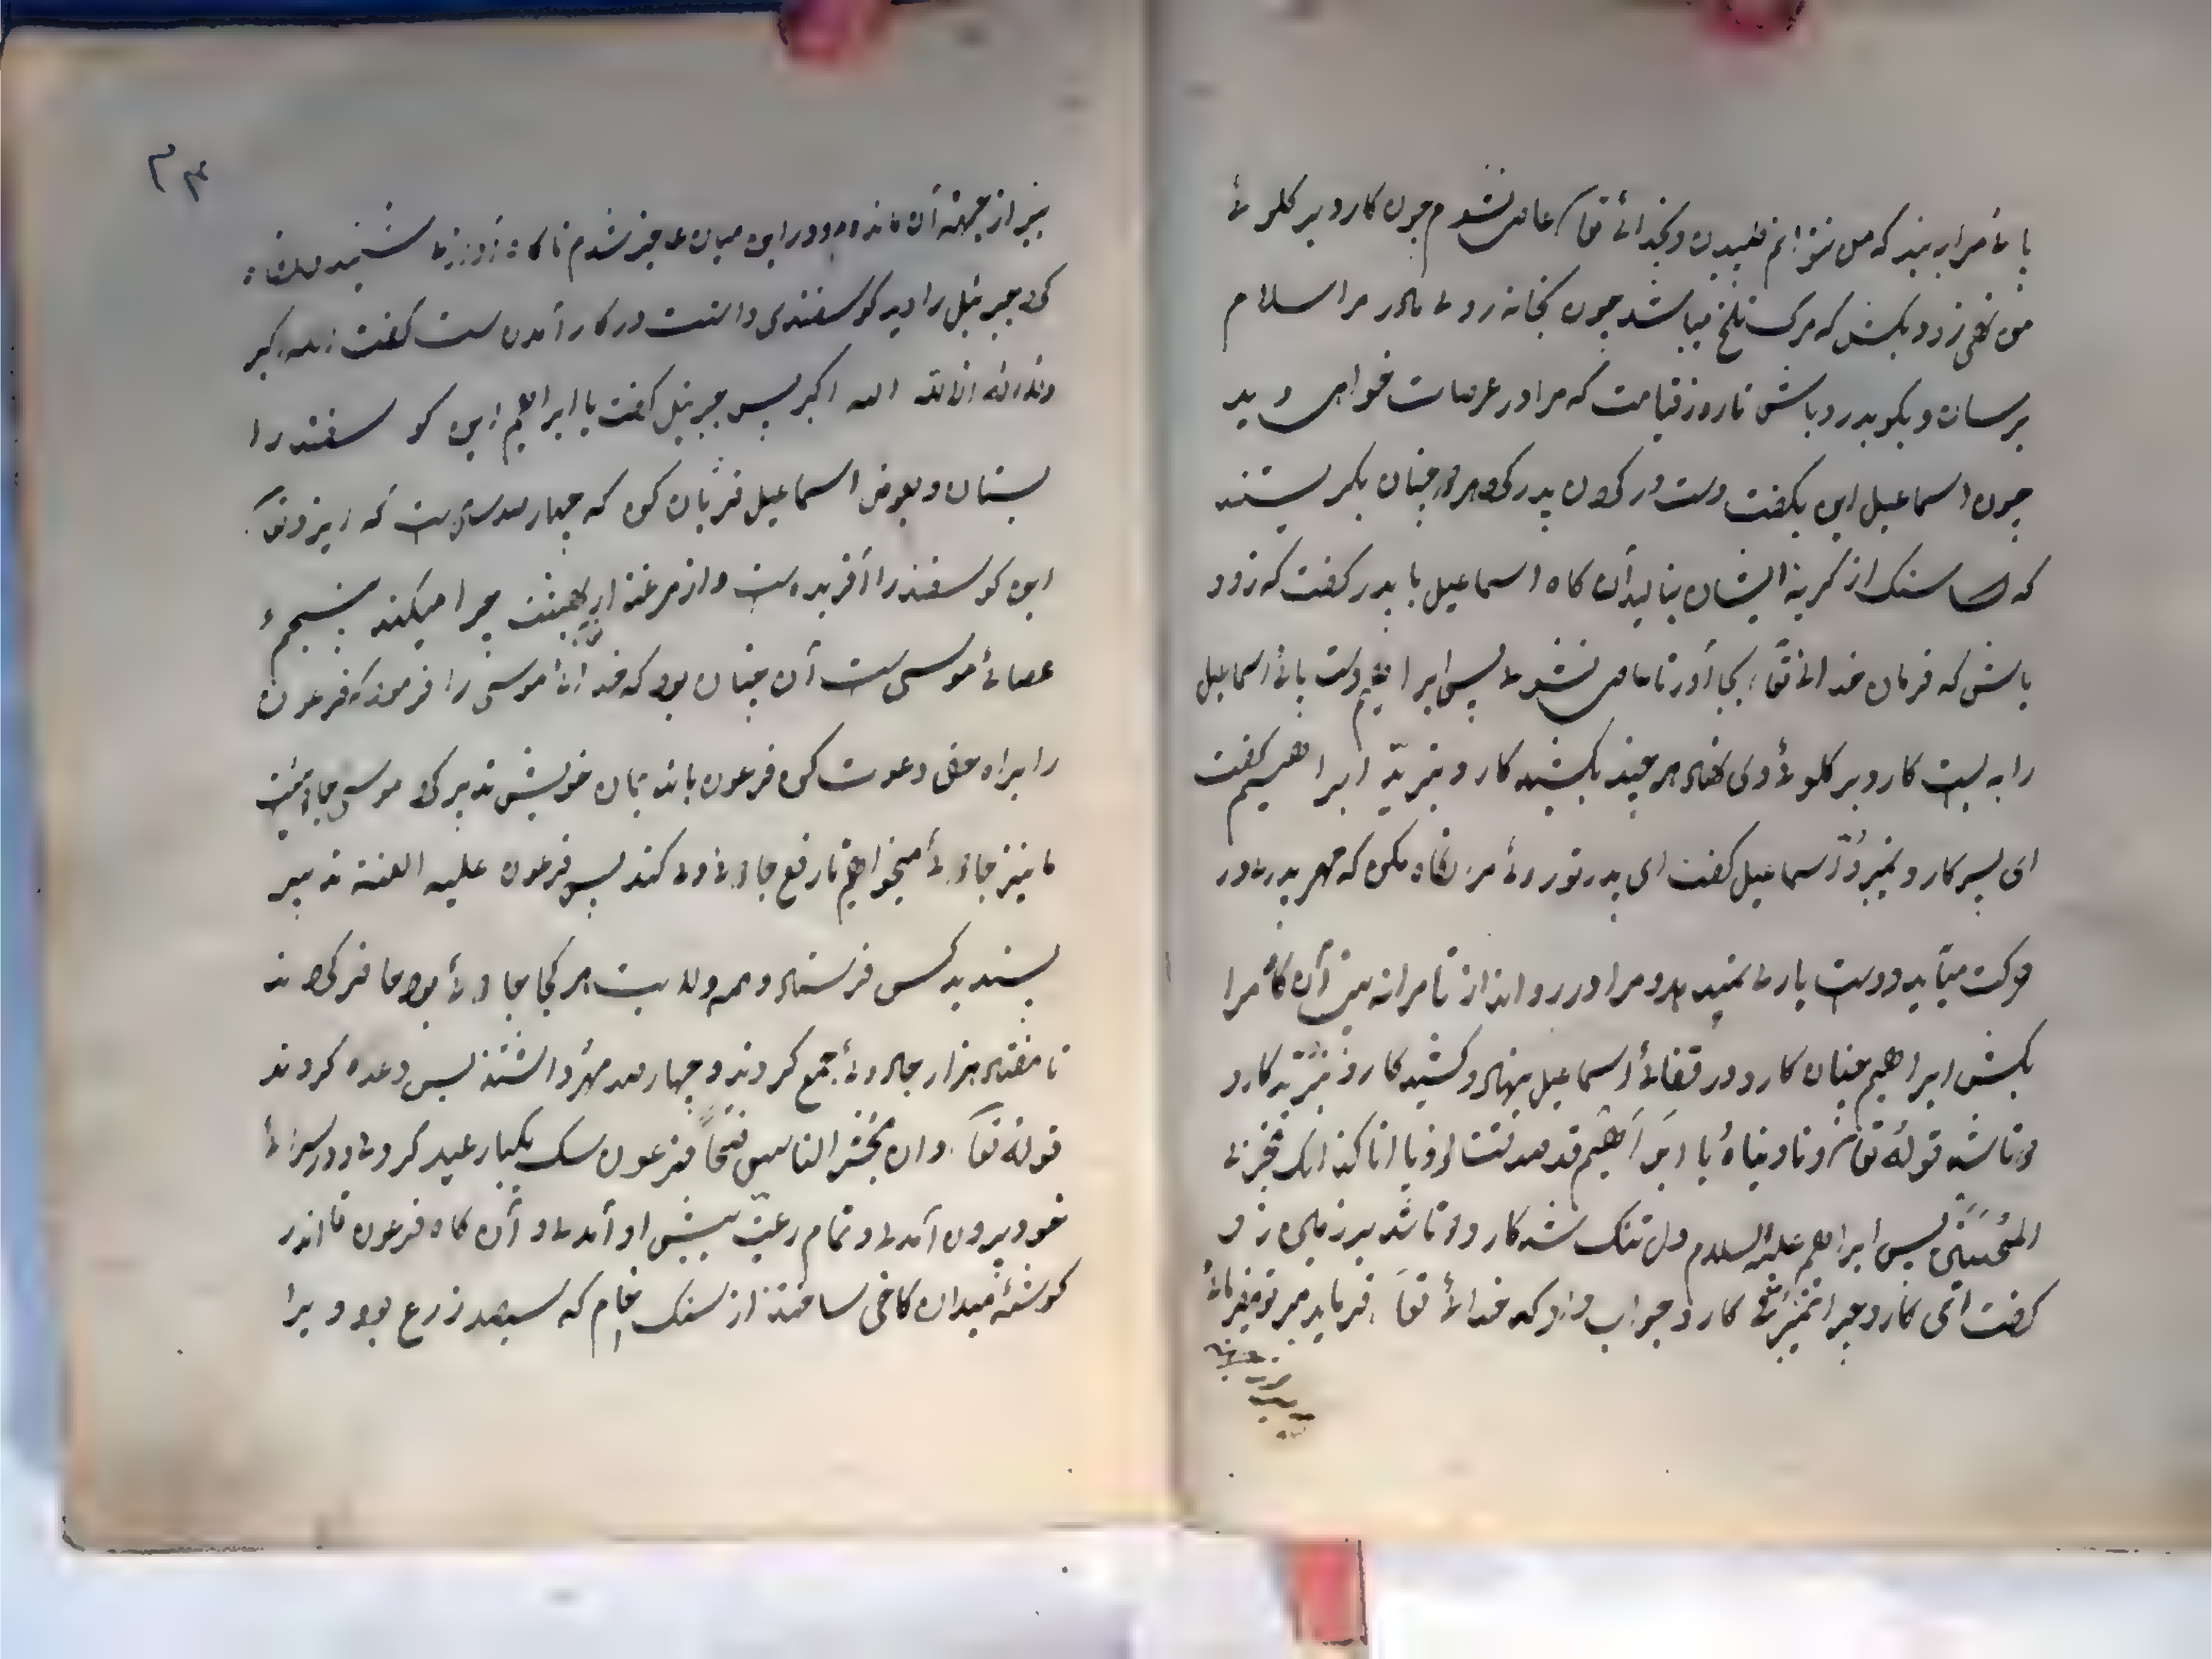 پای مرا به بند که من نتوانم طپیدن و بخدائ تعا عاصی نشوم چون کارد بر کلوئ
من نهی زود بکش که مرک تلخ میباشد چون بخانه روی مادر مرا سلام
برسان و بکو بدرود باش تا روز قیامت که مرا در عرصات خواهی دید
چون اسماعیل این بکفت دست در کردن پدر کرد هر دو چنان بکریستند
که سنک از کریه ایشان بنالید آن کاه اسماعیل با پدر کفت که زود
باش که فرمان خدائ تعا بجا آور تا عاصی نشوی پس ابراهیم دست پائ اسماعیل
را به بست کارد بر کلوئ وی نهاد هر چند بکشید کارد نبرید ابراهیم کفت
ای پسر کارد نمیبرد اسماعیل کفت ای پدر تو روئ من نکاه مکن که مهر پدری در
حرکت میآید و دست یاری نمیدهد و مرا در رو انداز تا مرا نه بینی آن کاه مرا
بکش ابراهیم چنان کارد در قفائ اسماعیل بنهاد و کشید کارد نبرید کارد
دوتا شد قوله تعا و نادیناه یا ابراهیم قد صدقت الرویا انا کذالک نجزی
المحسنین پس ابراهیم علیه السلام دل تنک شد کارد دوتا شد بر زمین زد
کفت ای کارد چرا نمیبری کارد جواب داد که خدائ تعا فرماید مبر تو میفرمائ
نیز از جهته آن مانده بود در این میان عاجز شدم ناکاه آوازی شنید نکاه
کرد جبرئیل را دید کوسفندی داشت در کار آمدن است کفت الله اکبر
الله اکبر پس جبرئیل کفت یا ابراهیم این کو سفند را
بستان و بعوض اسماعیل قربان کن که چهار صد سال است که ایزد تعا
این کوسفند را آفریده است و از مرغذار بهشت چرا میکند پنجم
عصائ موسی است آن چنان بود که خدائ موسی را فرمود که فرعون
را براه حق دعوت کن فرعون با ندیمان خویش تدبیر کرد موسی جادو است
ما نیز جادوئ میخواهیم تا رفع جادوئ وی کند پس فرعون علیه العنة تدبیر
پسندید کس فرستاد و همه ولایت هر کجا جادوئ بود حاضر کردند
تا هفتاد هزار جادوئ جمع کردند و چهار صد مهتر داشتند پس وعده کردند
قوله تعا و ان یحشر الناس ضحاً فرعون سک یکبار عید کردی و در سرائ
خود بیرون آمدی و تمام رعیت پیش او آمدی و آن کاه فرعون تا اندر
کوشهٔ میدان کاخی ساختند از سنک خام که سیصد زرع بود ویرا